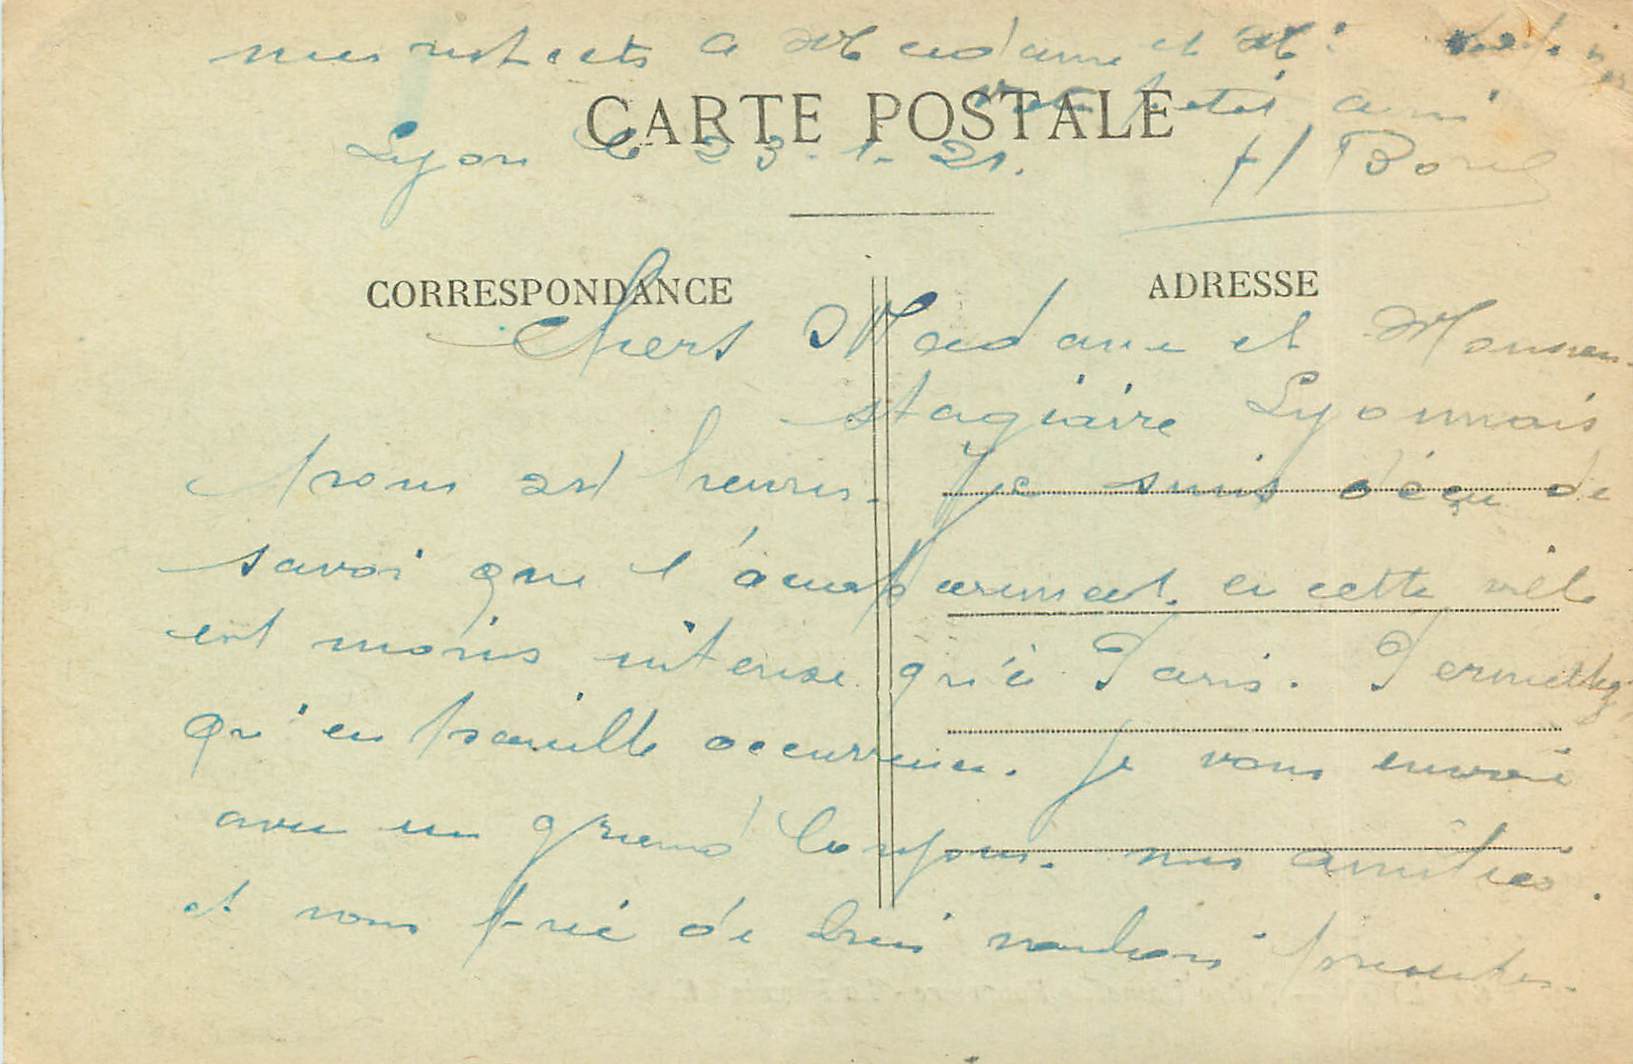 mes respects a Madame et Mr
votre petit ami
CARTE POSTALE
Lyon le 23-1-21.
H Borel
CORRESPONDANCE
ADRESSE
Chers Madame et Monsieu
stagiaire Lyonnais
heures. Je suis déçu de
savoir que l'accaparement en cette ville
est moins intense qu'à Paris. Permettez
qu'en pareille occurrence. je vous envoie
avec un grand bonjour. mes amitiés.
et vous prie de bien vouloir présenter.